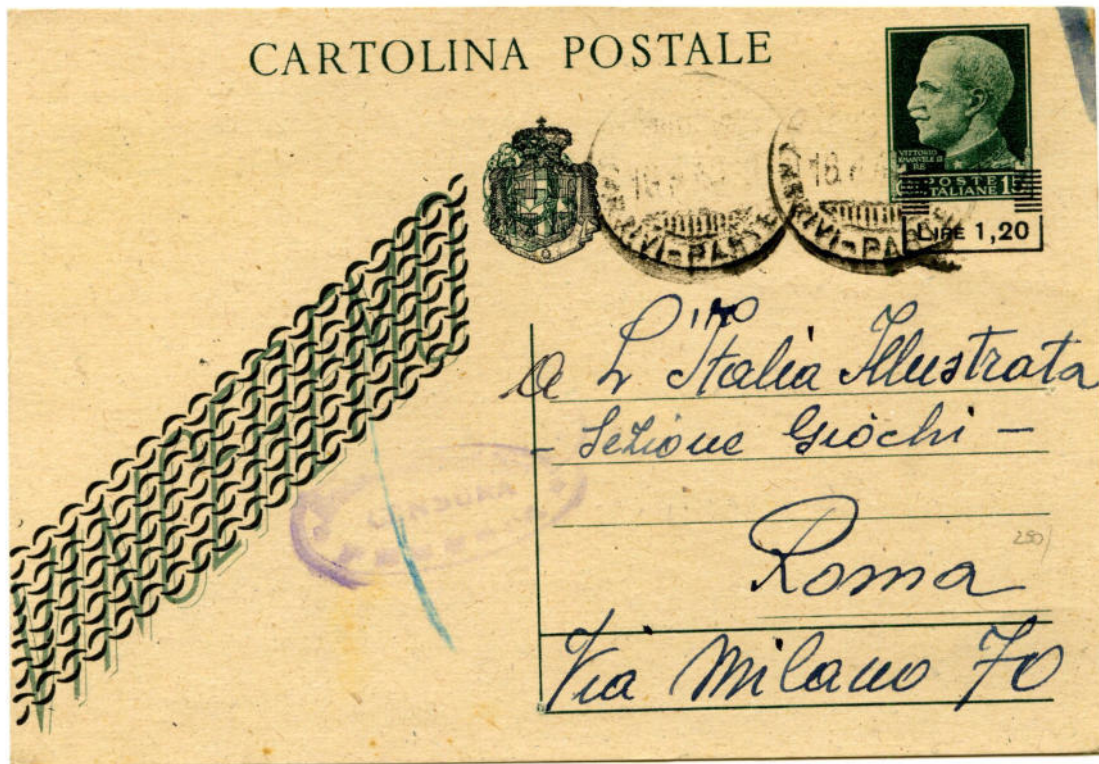 CARTOLINA POSTALE
VITTORIO
EMANUELE III
RE
POSTE
ITALIANE 15
LIRE 1,20
ARRIVI-PARTE
ARRIVI-PAR
CENSURA
a L'Italia Illustrata
- Sezione Giochi -
Roma
Via Milano 70
250/